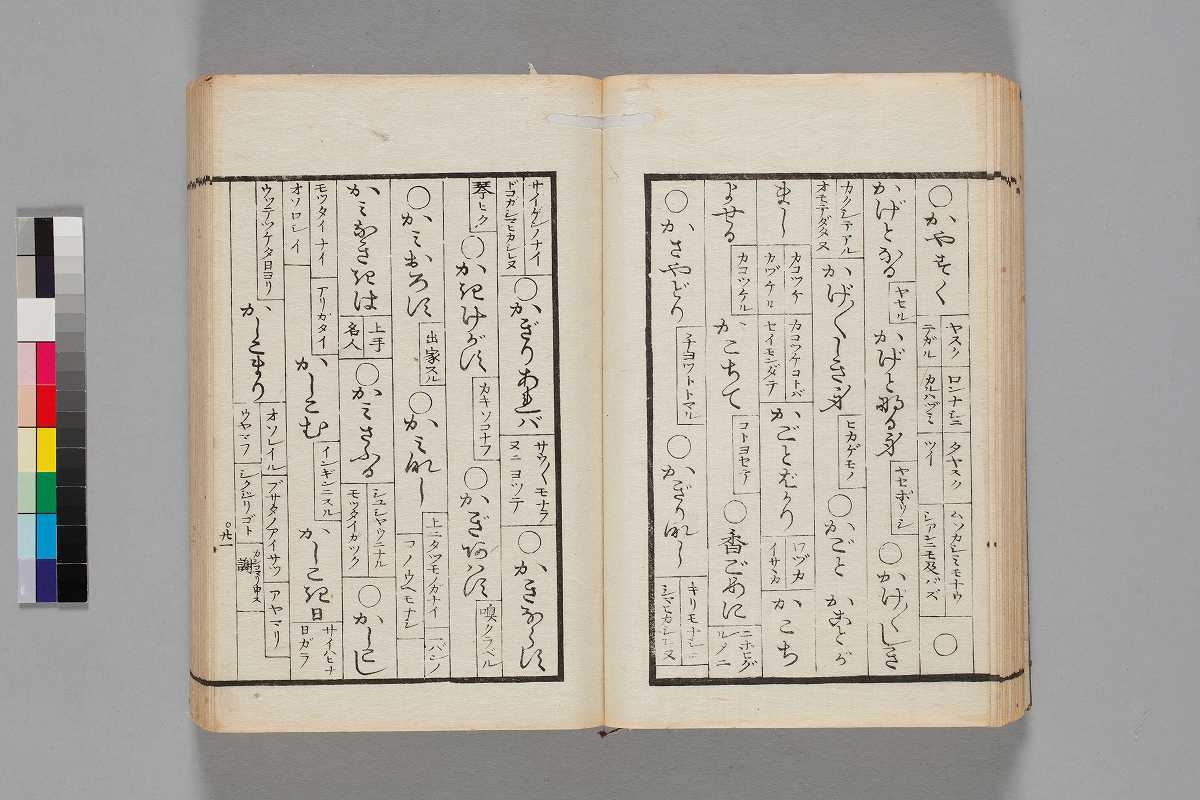 ○かやすく
ヤスク
テガル
ロンナシニ
カルハヅミ
タヤスク
ツイ
ムツカシミモナウ
シアンニモ及バズ
○
かげとなる
ヤセル
かげとなる身
ヤセボソリシ
○かげ〳〵しき
カクシテアル
オモテダタヌ
かげ〳〵しき身
ヒカゲモノ
○かごと
かごとが
まし
カコツケ
カヅケル
カコツケコトバ
セイモンダテ
かごとばかり
ワヅカ
イサヽカ
かこち
よせる
カコツケル
かこちて
コトヨセテ
○香ごめに
ニホヒグ
ルメニ
○かさやどり
チヨツトトマル
○かぎりなし
キリモナシニ
シマヒカシレヌ
サイゲンノナイ
ドコガシマヒカシレヌ
○かぎりあれバ
サウ〳〵モナラ
ヌニヨツテ
○かきならす
琴ヒク
○かきけがす
カキソコナフ
○かぎあはす
嗅クラベル
○かみおろす
出家スル
○かみなし
上ニタツモノガナイ
コノウヘモナシ
一バンノ
かみなききは
上手
名人
○かみさふる
シュシャウニナル
モツタイガツク
○かしこし
モツタイナイ
オソロシイ
アリガタイ
かしこむ
インギンニスル
かしこき日
サイハヒナ
日ガラ
ウツテツケタ日ヨリ
かしこまり
オソレイル
ウヤマフ
ブサタノアイサツ
シクジリゴト
アヤマリ
謝
カシコマリ申ス